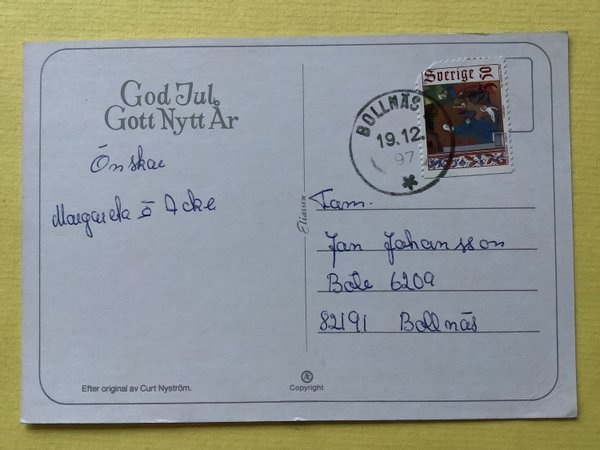 God Jul,
Gott Nytt År
Önskar
Margareta o Acke
Efter original av Curt Nyström.
Eliassen
Æ
Copyright
Sverige
3 50
BOLLNÄS
19.12.
97
Fam.
Jan Johansson
Bole 6209
82191 Bollnäs